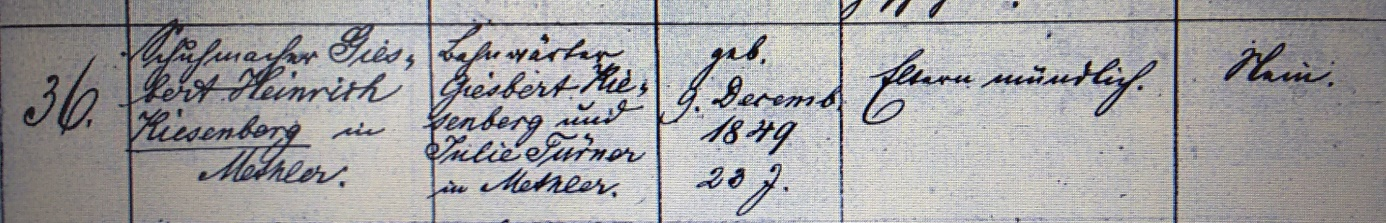 36.
Schuhmacher Gies-
bert Heinrich
Kiesenberg in
Methler.
Bahnwärter
Giesbert Kie-
senberg und
Julie Türner
in Methler.
geb.
9. Decemb.
1849
23 J.
Eltern mündlich.
Nein.